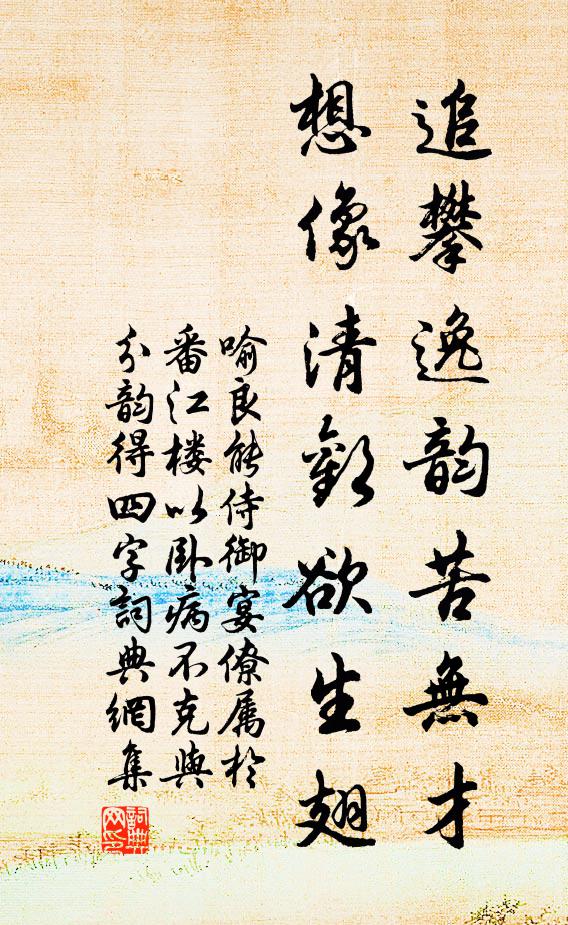 追攀逸韵苦無才
想像清歡欲生翅
喻良能侍御宴僚属於
番江楼以卧病不克與
分韵得四字詞典網集